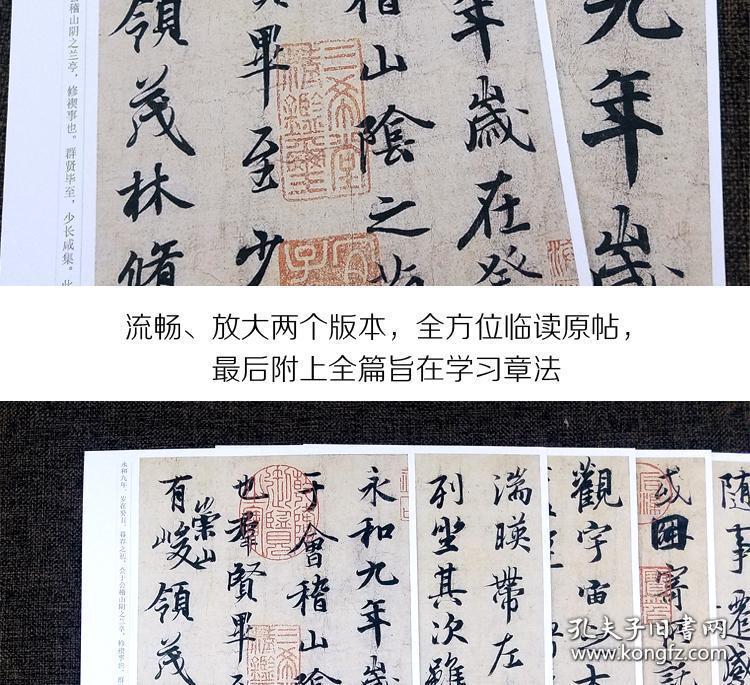 九年歲
年歲在癸
稽山陰之蘭
賢畢至少
領茂林脩
会稽山阴之兰亭，修禊事也。群贤毕至，少长咸集。此
三希堂精鑑璽
宜子
流畅、放大两个版本，全方位临读原帖，
最后附上全篇旨在学习章法
随事遷感
或因寄所託
觀宇宙
湍暎帶左
列坐其次雖
永和九年歲
于會稽山陰
也羣賢畢
有崇山峻領茂
永和九年，岁在癸丑，暮春之初，会于会稽山阴之兰亭，修禊事也。群
三希
孔夫子旧书网
www.kongfz.com